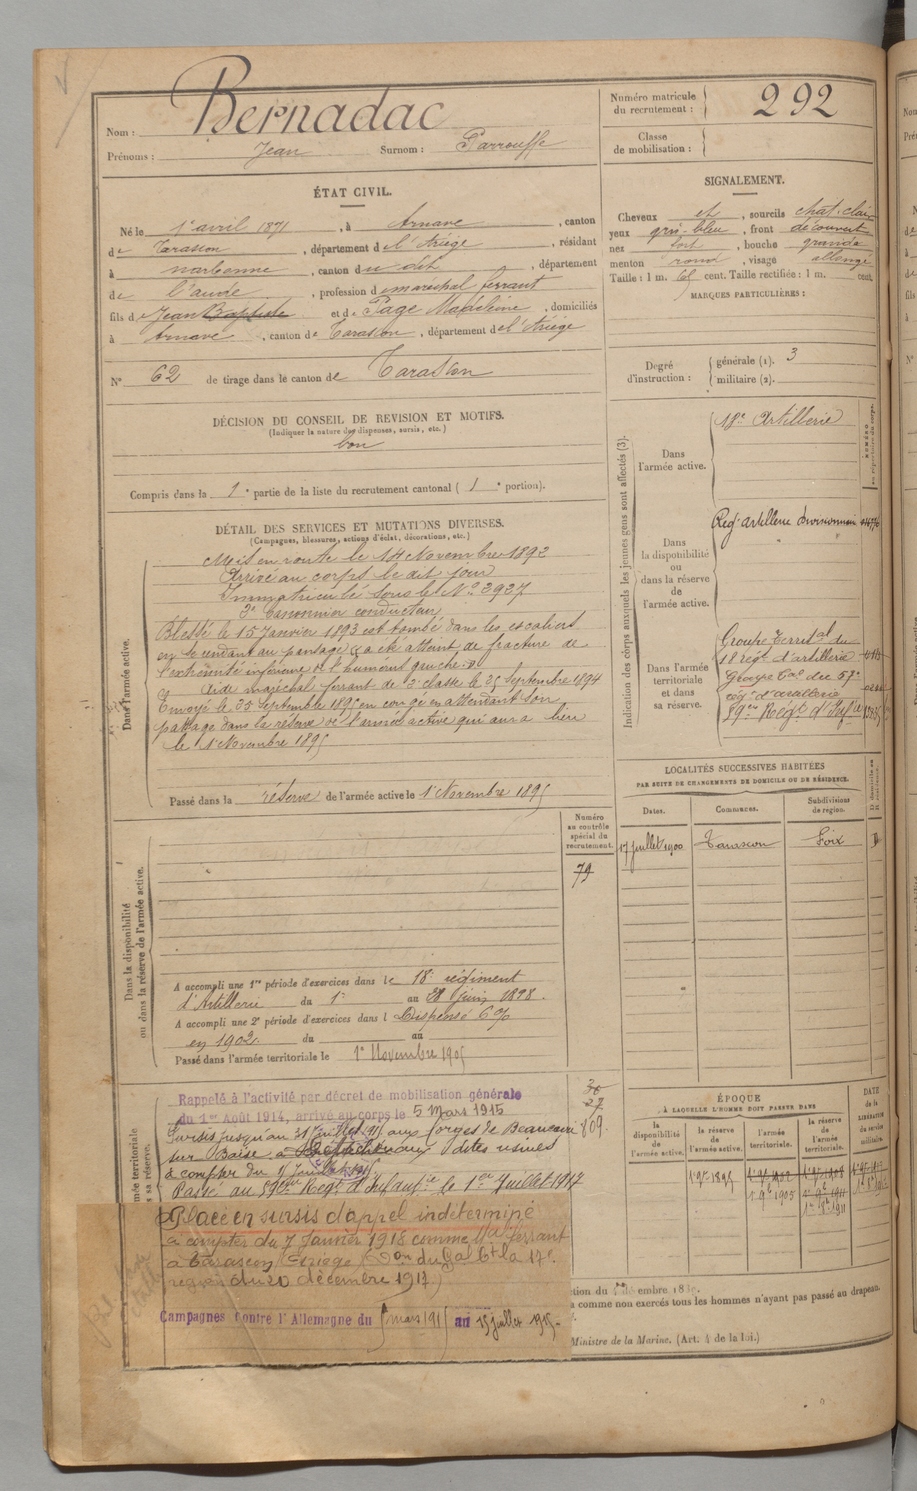 Nom : Bernadac
Prénoms : Jean Surnom : Parrouffe
Numéro matricule du recrutement : 292
Classe de mobilisation :
ÉTAT CIVIL.
Né le 1er avril 1871, à Arnave, canton
de Tarascon, département de l'Ariège, résidant
à narbonne, canton du dit, département
de l'aude, profession de maréchal ferrant
fils de Jean Baptiste et de Page Madeleine, domiciliés
à Arnave, canton de Tarascon, département de l'Ariège
N° 62 de tirage dans le canton de Tarascon
DÉCISION DU CONSEIL DE REVISION ET MOTIFS.
(Indiquer la nature des dispenses, sursis, etc.)
bon
Compris dans la 1e partie de la liste du recrutement cantonal ( 1e portion).
SIGNALEMENT.
Cheveux et, sourcils chat. clair
yeux gris-bleu, front découvert
nez fort, bouche grande
menton rond, visage allongé
Taille : 1 m. 65 cent. Taille rectifiée : 1 m. cent.
MARQUES PARTICULIÈRES :
Degré d'instruction : générale (1). 3
militaire (2).
DÉTAIL DES SERVICES ET MUTATIONS DIVERSES.
(Campagnes, blessures, actions d'éclat, décorations, etc.)
Dans l'armée active.
Mis en route le 14 Novembre 1892
Arrivé au corps le dit jour
Immatriculé sous le N° 3937
2e Canonnier conducteur
Blessé le 15 Janvier 1893 est tombé dans les escaliers
en se rendant au pansage, a été atteint de fracture de
l'extrémité inférieure de l'humérus gauche.
Aide maréchal ferrant de 2e classe le 25 Septembre 1894
Envoyé le 25 Septembre 1895 en congé en attendant son
passage dans la réserve de l'armée active qui aura lieu
le 1er Novembre 1895
Passé dans la réserve de l'armée active le 1er Novembre 1895
Indication des corps auxquels les jeunes gens sont affectés (3).
Dans l'armée active.
18e Artillerie
Dans la disponibilité ou dans la réserve de l'armée active.
Regt artillerie divisionnaire
Dans l'armée territoriale et dans sa réserve.
Groupe territal du
18 régt d'artillerie
Groupe tal du 57e
rég. d'artillerie
59eme Régt d'Infie
LOCALITÉS SUCCESSIVES HABITÉES
PAR SUITE DE CHANGEMENTS DE DOMICILE OU DE RÉSIDENCE.
Dates. Communes. Subdivisions de région.
17 juillet 1900 Tarascon Foix D
Numéro au contrôle spécial du recrutement.
79
Dans la disponibilité ou dans la réserve de l'armée active.
A accompli une 1re période d'exercices dans le 18e régiment
d'Artillerie du 1er au 28 Juin 1898.
A accompli une 2e période d'exercices dans l Dispensé 6%
en 1902. du au
Passé dans l'armée territoriale le 1er Novembre 1905
Rappelé à l'activité par décret de mobilisation générale
du 1er Août 1914, arrivé au corps le 5 Mars 1915
Sursis jusqu'au 31 aux forges de Beaucaire
sur Baïse dites usines
à compter du
Passé au 59eme Régt d'Infanie le 1er Juillet 1917
Placé en sursis d'appel indéterminé
à compter du 7 Janvier 1918 comme Mal ferrant
à Tarascon Ariège (Don du Gal Ct la 17e
région du 20 décembre 1917)
Campagnes Contre l'Allemagne du 5 mars 1915 au 15 juillet 1915
809
ÉPOQUE
A LAQUELLE L'HOMME DOIT PASSER DANS
la disponibilité de l'armée active.
la réserve de l'armée active.
l'armée territoriale.
la réserve de l'armée territoriale.
DATE de la LIBÉRATION du service militaire.
1er 9bre 1895
1er 9bre 1905
comme non exercés tous les hommes n'ayant pas passé au drapeau.
Ministre de la Marine. (Art. 4 de la loi.)